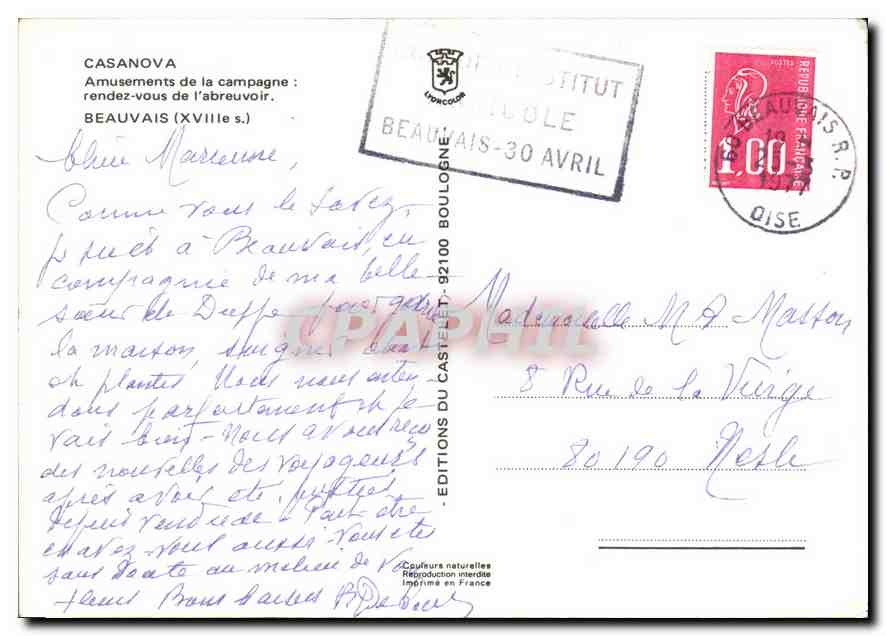 CASANOVA
Amusements de la campagne :
rendez-vous de l'abreuvoir.
BEAUVAIS (XVIIIe s.)
LYONCOLOR
STITUT
BEAUVAIS-30 AVRIL
POSTES
REPUBLIQUE FRANÇAISE
1,00
60 BEAUVAIS R.P.
1977
OISE
Comme vous le savez,
je suis à Beauvais, en
compagnie de ma belle
sœur de Dieppe pour garder
la maison, soigner
et plantes. Nous nous enten-
dons parfaitement et je
vais bien - Nous avons reçu
des nouvelles des voyageurs
après avoir été
depuis vendredi - Peut-être
en avez-vous aussi - Vous êtes
sans doute au milieu de vos
fleurs Bons baisers
- EDITIONS DU CASTELET - 92100 BOULOGNE
Mademoiselle M A Masson
8 Rue de la Vierge
80190 Nesle
CPAPHIL
Couleurs naturelles
Reproduction interdite
Imprimé en France